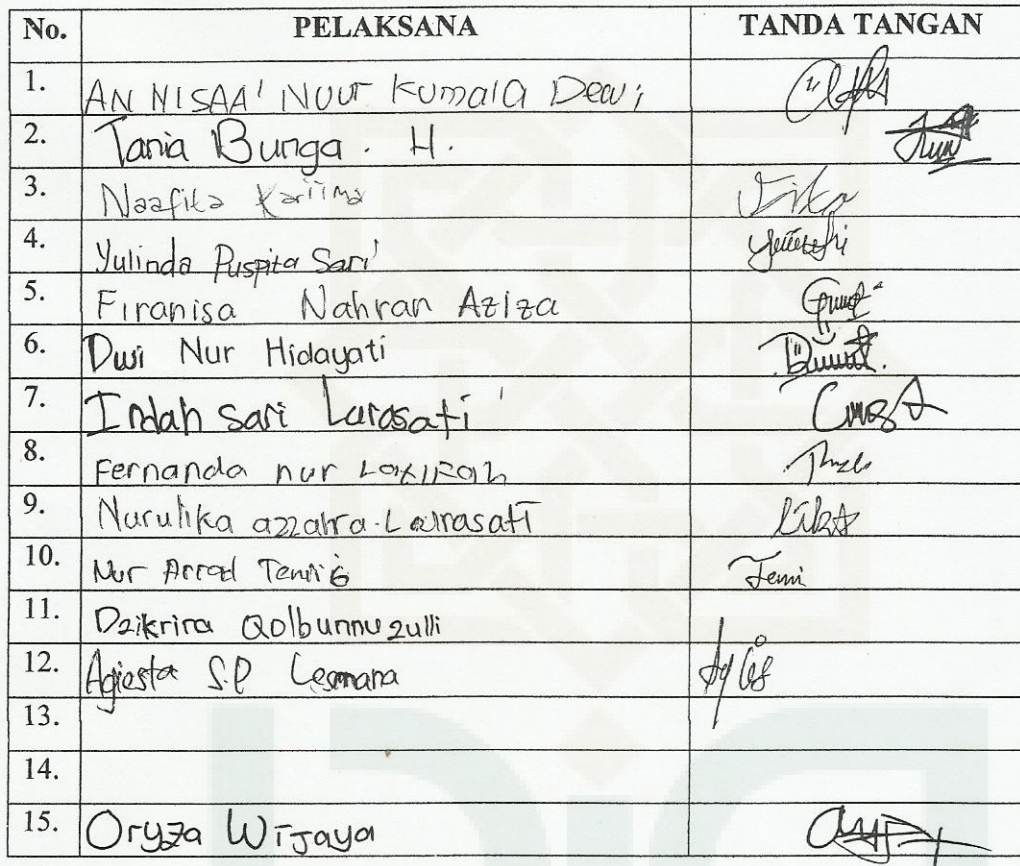 No. PELAKSANA TANDA TANGAN
1. AN NISAA' NUUr Kumala Dewi
2. Tania Bunga. H.
3. Naafita Kariima
4. Yulinda Puspita Sari
5. Firanisa Nahran Aziza
6. Dwi Nur Hidayati
7. Indah Sari Larasati
8. Fernanda nur
9. Nurulika azzahra
10. Nur
11. Dzikrira Qolbunnuzulli
12. Agiesta S.P Lesmana
13.
14.
15. Oryza Wijaya